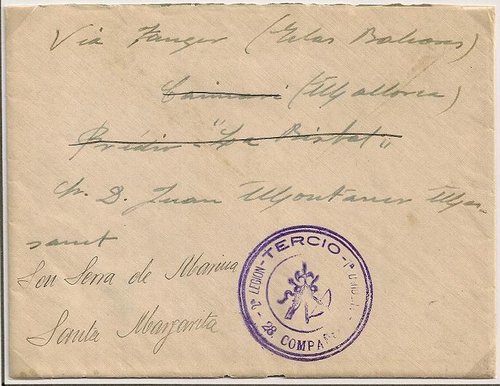 Via Tanger (Islas Baleares)
Caimari (Mallorca)
Prédio "La Bistal"
Sr. D. Juan Montaner Mar-
sanet
Son Serra de Marina
Santa Margarita
2ª LEGION - TERCIO -
28. COMPAÑIA